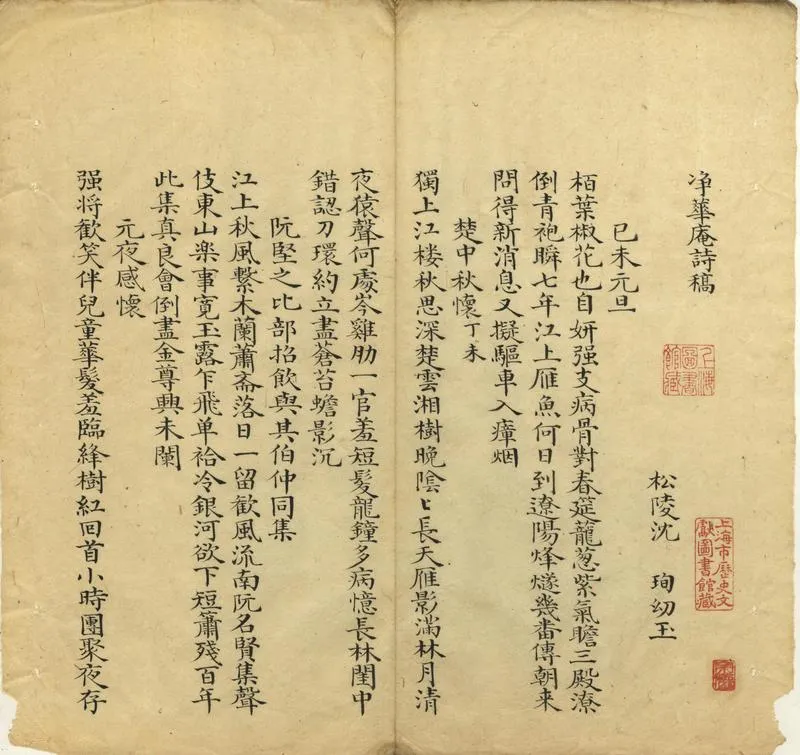 净華庵詩稿
松陵沈 珣幼玉
已未元旦
栢葉椒花也自妍强支病骨對春筵蘢葱紫氣瞻三殿潦
倒青袍瞬七年江上雁魚何日到遼陽烽燧幾畨傳朝来
問得新消息又擬驅車入瘴烟
楚中秋懷丁未
獨上江楼秋思深楚雲湘樹晚陰ヒ長天雁影滿林月清
夜猿聲何處岑雞肋一官羞短髮龍鐘多病憶長林閨中
錯認刀環約立盡蒼苔蟾影沉
阮堅之比部招飲與其伯仲同集
江上秋風繫木蘭蕭斋落日一留歡風流南阮名賢集聲
伎東山楽事寛玉露乍飛单袷冷銀河欲下短簫殘百年
此集真良會倒盡金尊興未闌
元夜感懷
强将歡笑伴兒童華髮羞臨絳樹紅回首小時團聚夜存
上海圖書館藏
上海市歷史文獻圖書館藏